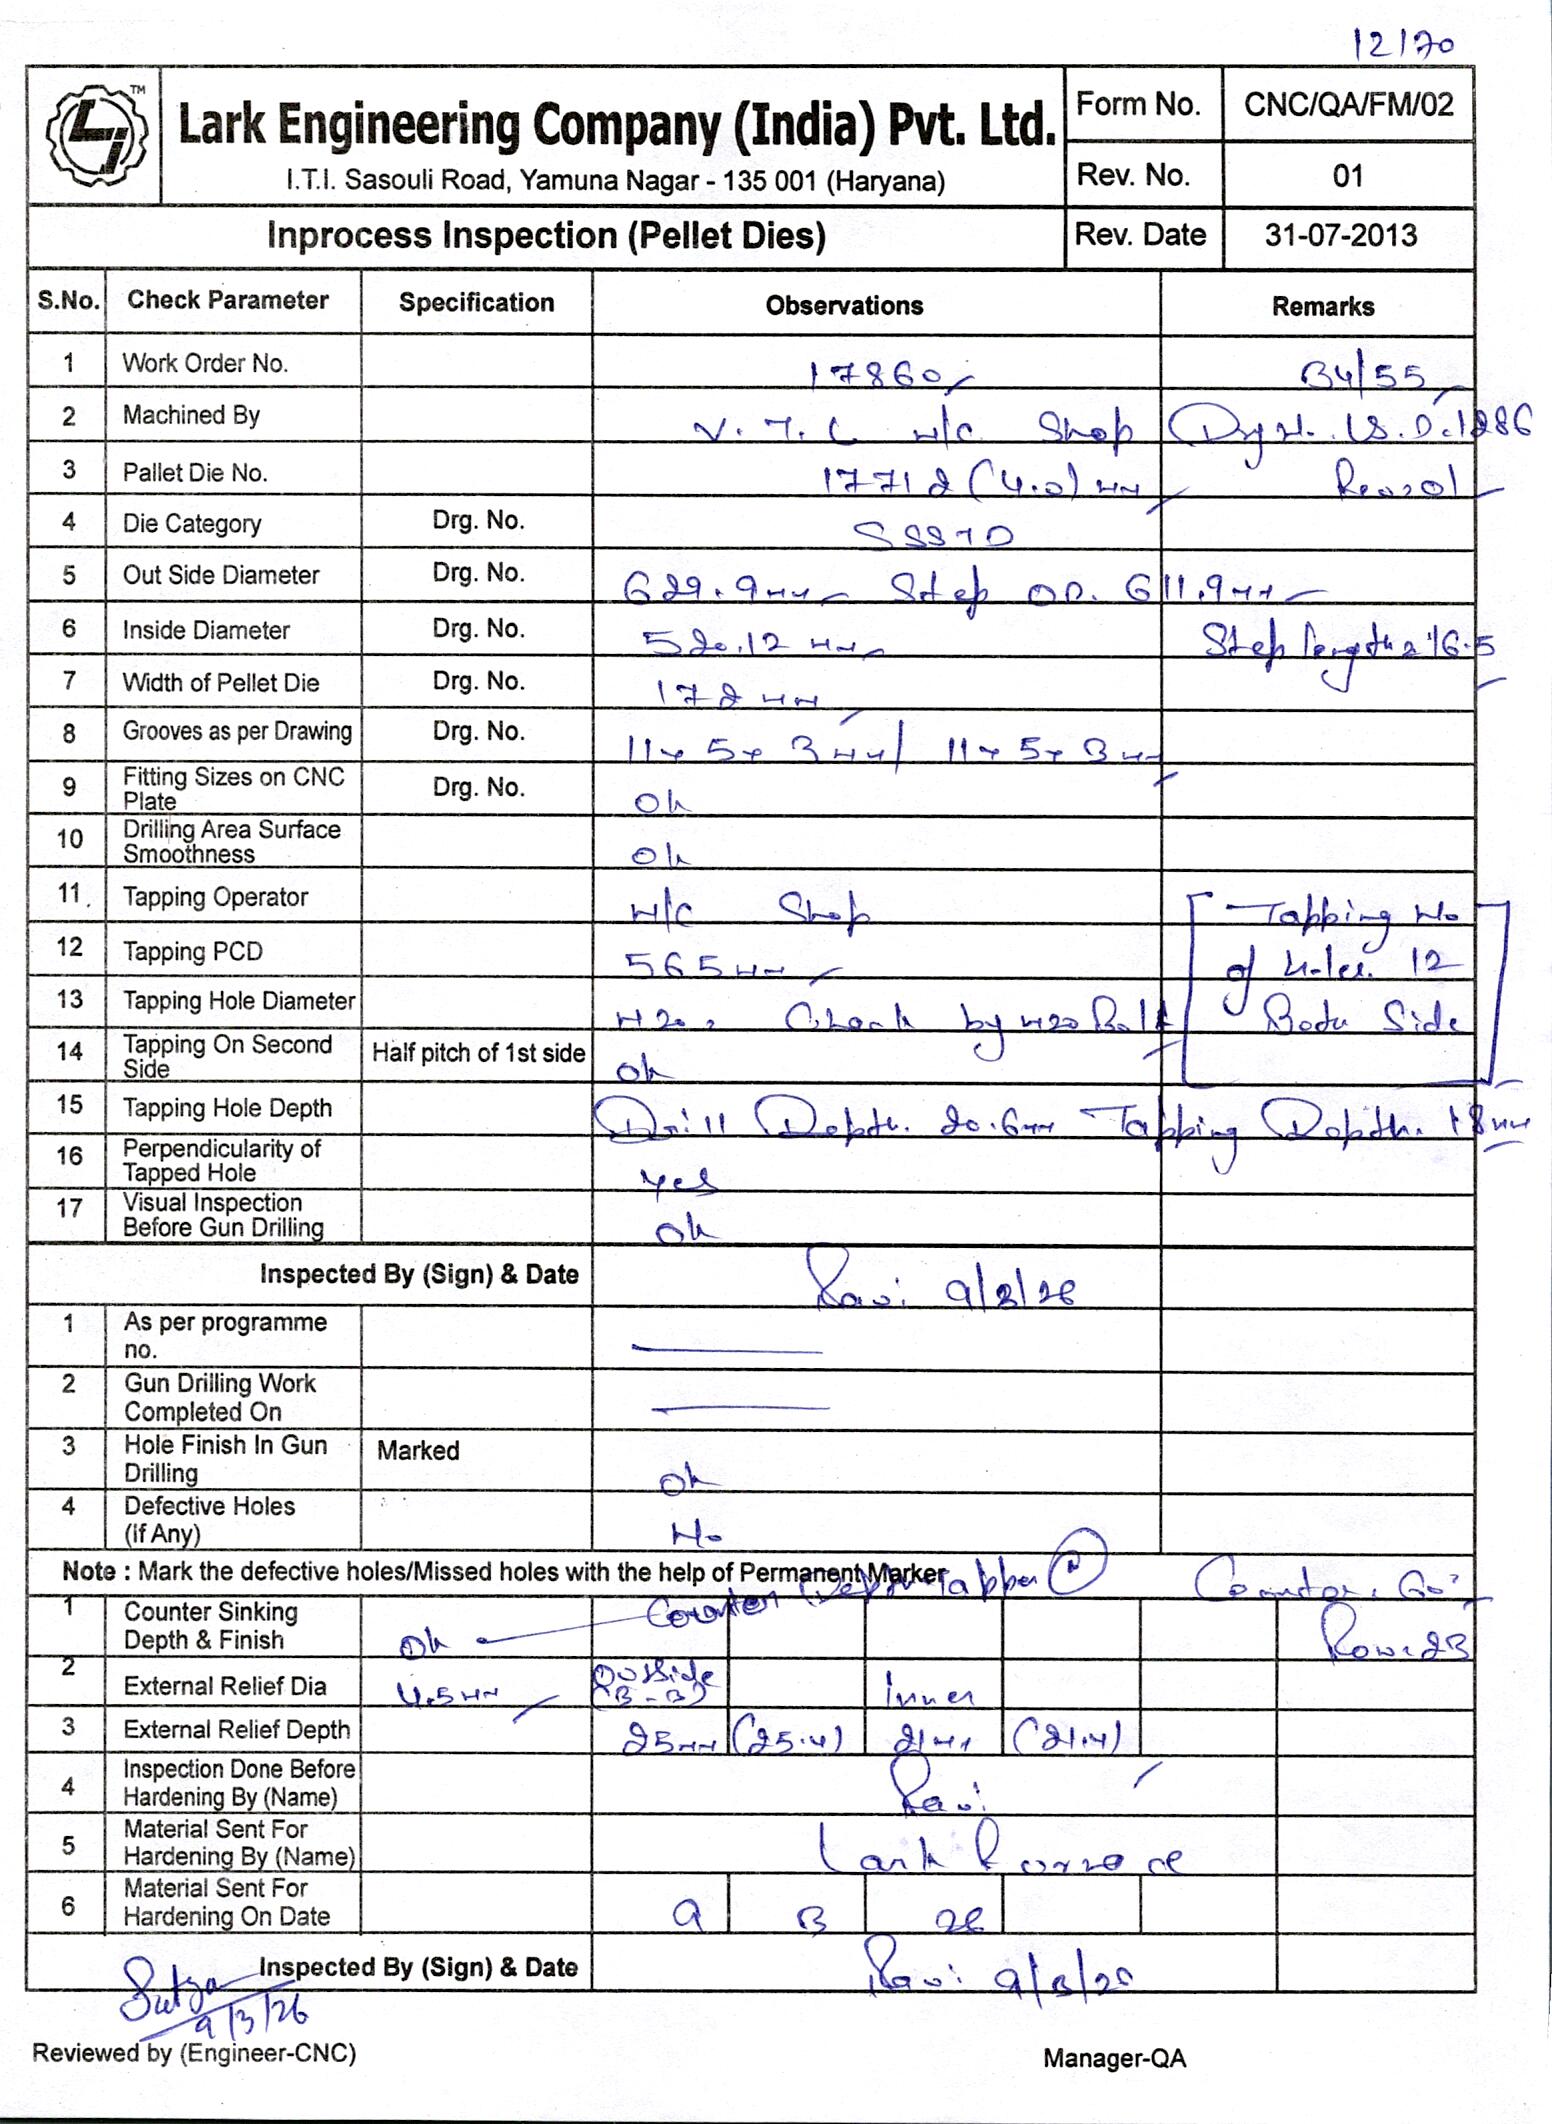 12170
TM
Lark Engineering Company (India) Pvt. Ltd.
I.T.I. Sasouli Road, Yamuna Nagar - 135 001 (Haryana)
Form No. CNC/QA/FM/02
Rev. No. 01
Inprocess Inspection (Pellet Dies) Rev. Date 31-07-2013
S.No. Check Parameter Specification Observations Remarks
1 Work Order No. 17860 B4/55
2 Machined By V.T.L M/C Shop Drg N. 1286
3 Pallet Die No. 17712 (4.0) mm Rev:01
4 Die Category Drg. No. SSSTD
5 Out Side Diameter Drg. No. 629.9mm Step OD. 611.9mm
6 Inside Diameter Drg. No. 520.12 mm Step length 16.5
7 Width of Pellet Die Drg. No. 172 mm
8 Grooves as per Drawing Drg. No. 11x5x3mm/ 11x5x3mm
9 Fitting Sizes on CNC Plate Drg. No. Ok
10 Drilling Area Surface Smoothness Ok
11. Tapping Operator M/C Shop Tapping No
12 Tapping PCD 565mm of holes. 12
13 Tapping Hole Diameter M20, Check by M20 Bolt Both Side
14 Tapping On Second Side Half pitch of 1st side Ok
15 Tapping Hole Depth Drill Depth. 20.6mm Tapping Depth. 18mm
16 Perpendicularity of Tapped Hole Yes
17 Visual Inspection Before Gun Drilling Ok
Inspected By (Sign) & Date Ravi 9/3/26
1 As per programme no.
2 Gun Drilling Work Completed On
3 Hole Finish In Gun Drilling Marked Ok
4 Defective Holes (If Any) No
Note : Mark the defective holes/Missed holes with the help of Permanent Marker
Counter Depth Tapper Counter. 60°
1 Counter Sinking Depth & Finish Ok Row:23
2 External Relief Dia 4.5mm Outside (3-3) Inner
3 External Relief Depth 25mm (25.4) 21mm (21.4)
4 Inspection Done Before Hardening By (Name) Ravi
5 Material Sent For Hardening By (Name) Lark Furnace
6 Material Sent For Hardening On Date 9 3 26
Inspected By (Sign) & Date Ravi 9/3/26
Satya
9/3/26
Reviewed by (Engineer-CNC) Manager-QA